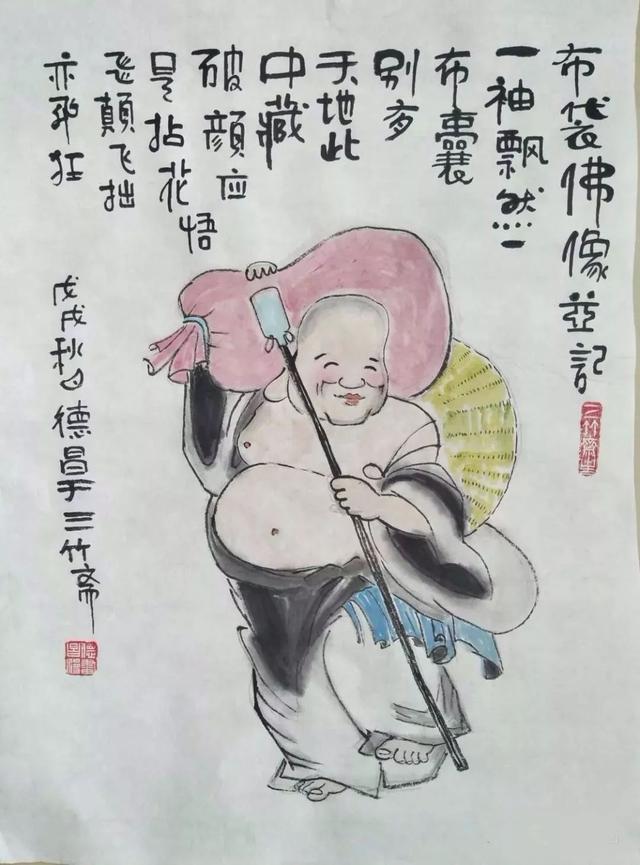 布袋佛像並記
一袖飘然一
布囊
别有
天地此
中藏
破顔应悟
是拈花
顛飞拙
亦狂
戊戌秋日德昌于三竹斋
三竹齋主